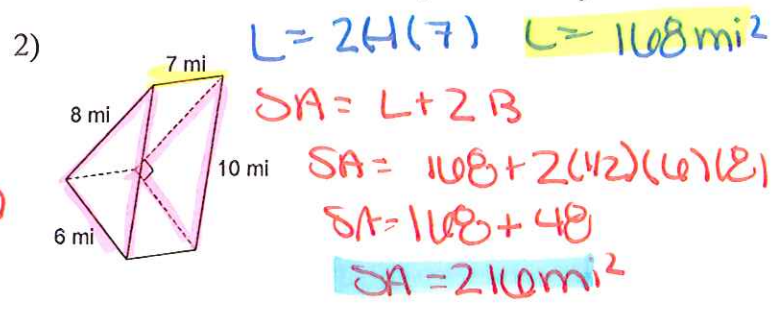 2)
7 mi
8 mi
10 mi
6 mi
L = 24(7) L = 168mi²
SA = L + 2B
SA = 168 + 2(1/2)(6)(8)
SA = 168 + 48
SA = 216mi²